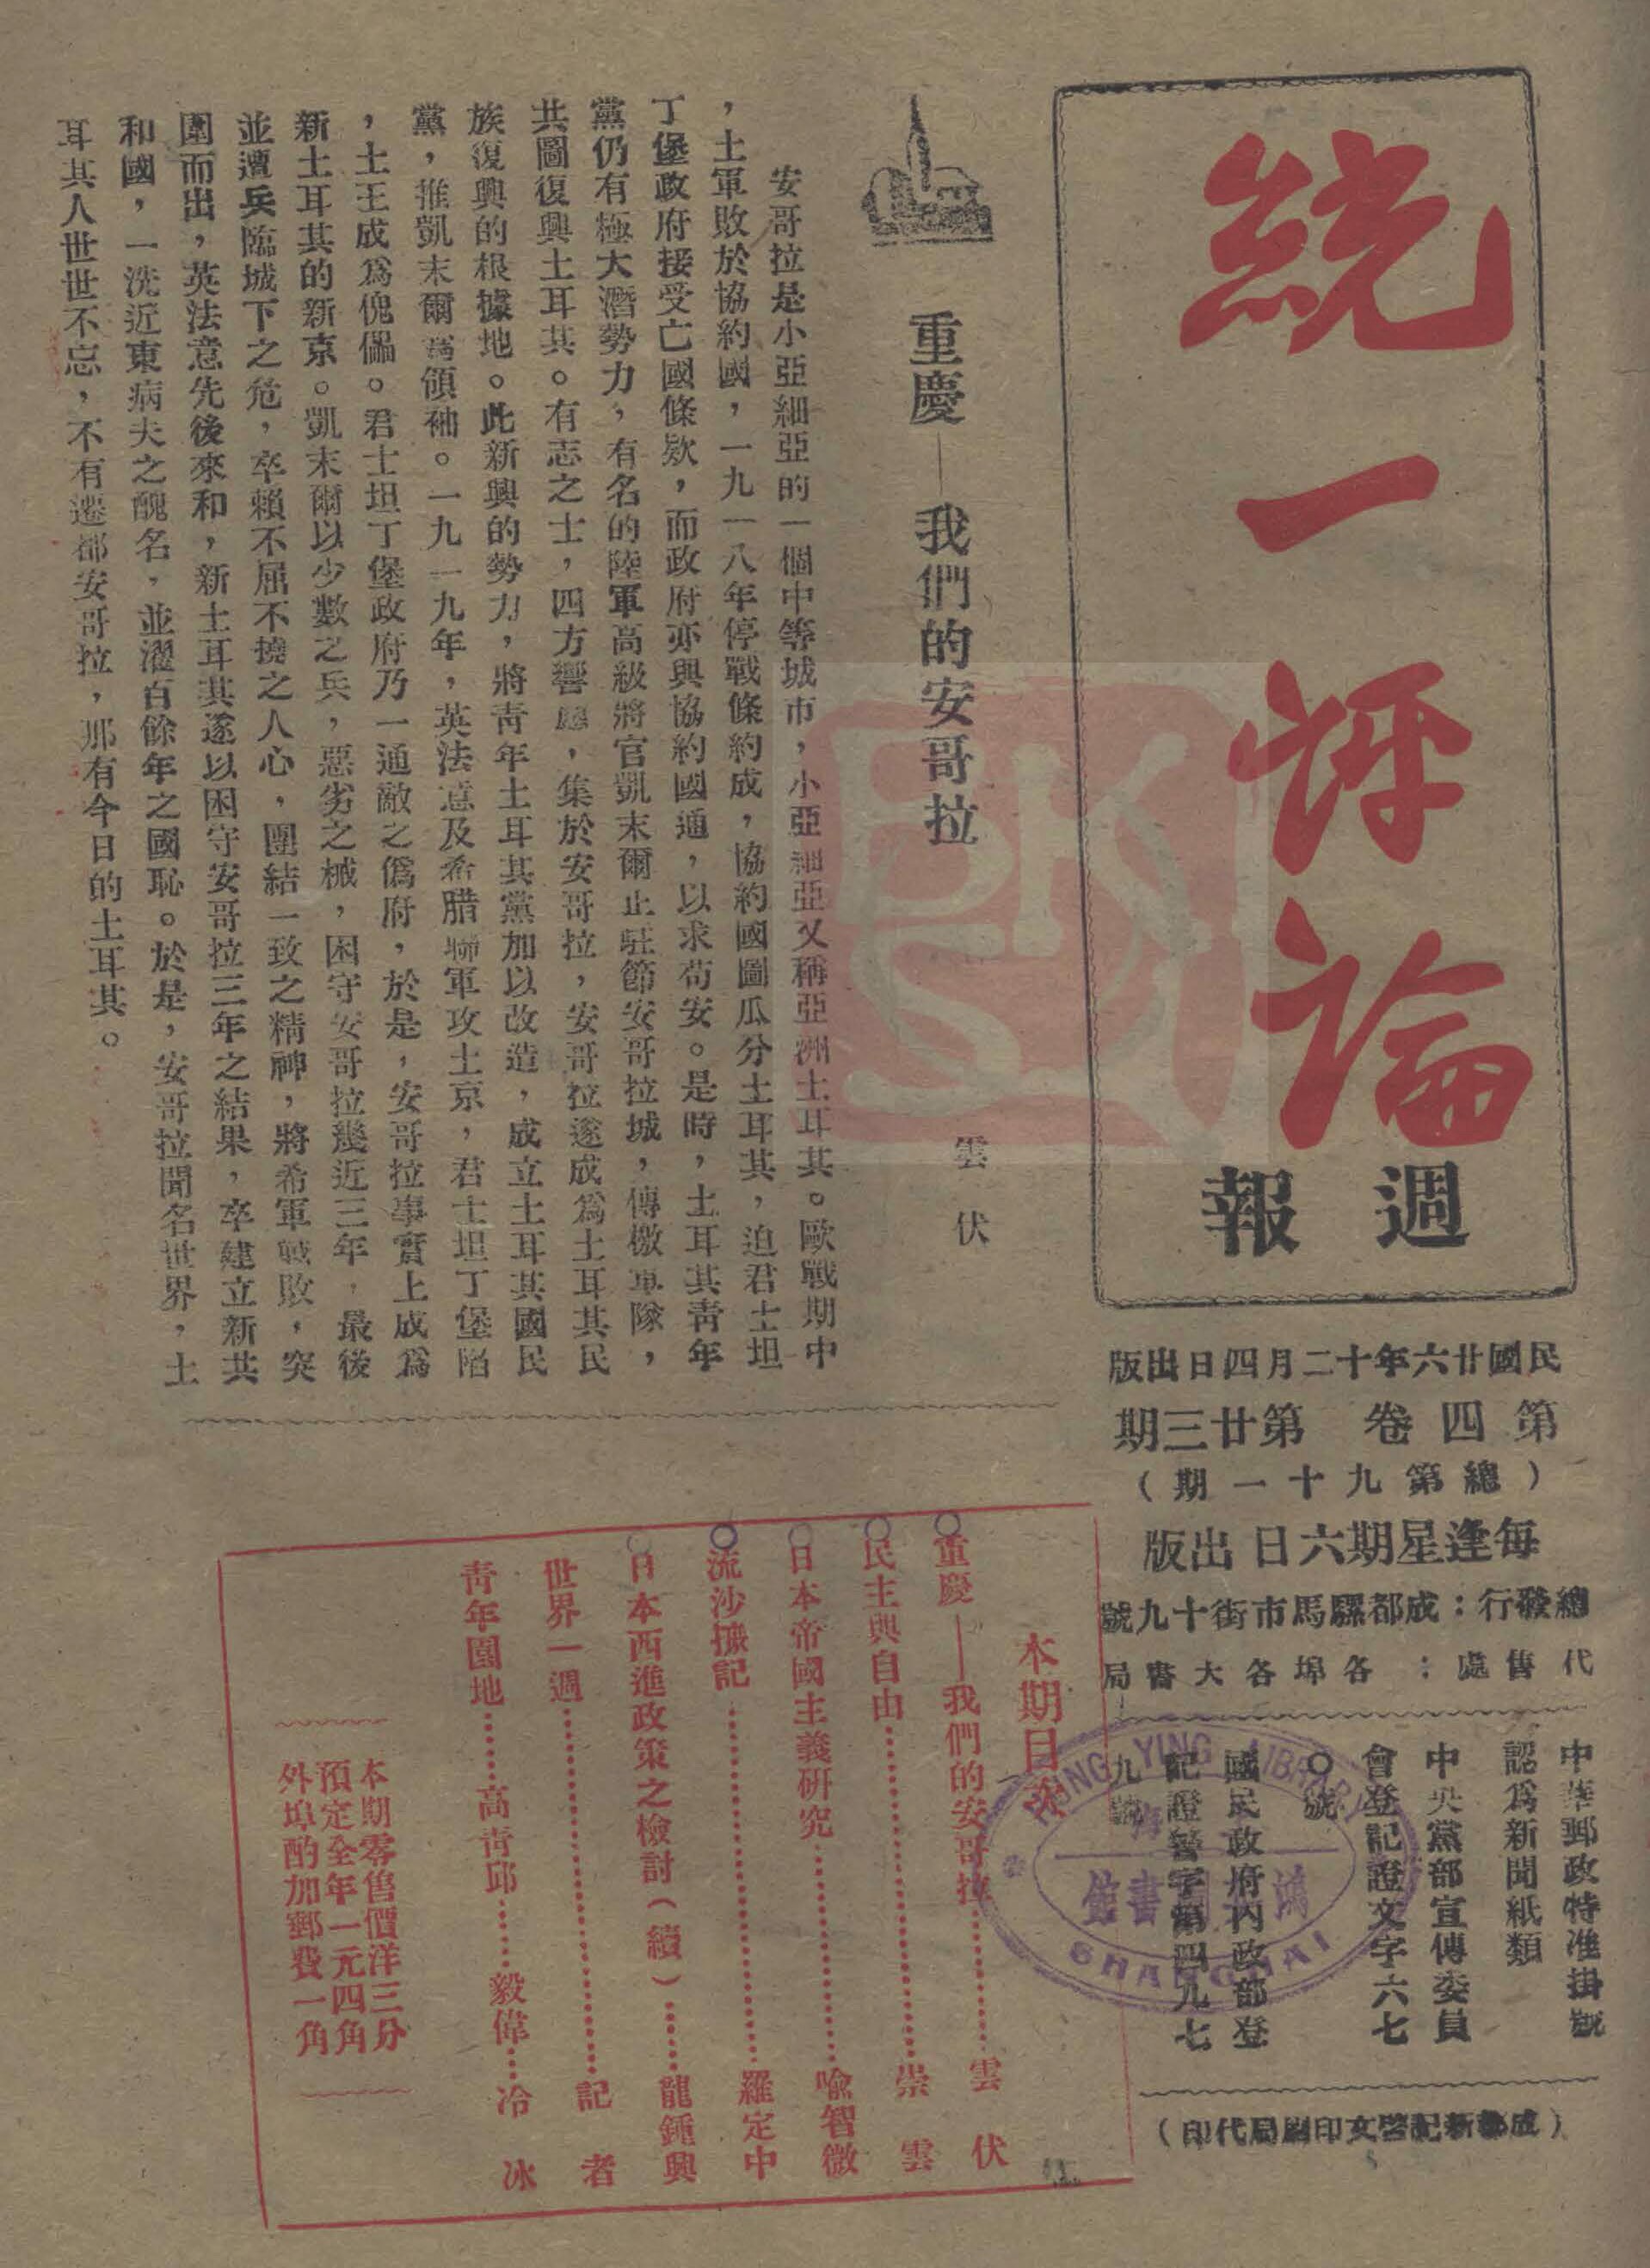 統一評論
週報
民國廿六年十二月四日出版
第四卷 第廿三期
(總第九十一期)
每逢星期六日出版
總發行:成都騾馬市街十九號
代售處:各埠各大書局
中華郵政特准掛號
認爲新聞紙類
中央黨部宣傳委員
會登記證文字六七
〇號
國民政府內政部登
記證警字第四九七
九號
(成都新記啓文印刷局代印)
重慶——我們的安哥拉
雲伏
安哥拉是小亞細亞的一個中等城市,小亞細亞又稱亞洲土耳其。歐戰期中
,土軍敗於協約國,一九一八年停戰條約成,協約國圖瓜分土耳其,迫君士坦
丁堡政府接受亡國條欵,而政府亦與協約國通,以求苟安。是時,土耳其青年
黨仍有極大潛勢力,有名的陸軍高級將官凱末爾止駐節安哥拉城,傳檄軍隊,
共圖復興土耳其。有志之士,四方響應,集於安哥拉,安哥拉遂成爲土耳其民
族復興的根據地。此新興的勢力,將青年土耳其黨加以改造,成立土耳其國民
黨,推凱末爾爲領袖。一九一九年,英法意及希腊聯軍攻土京,君士坦丁堡陷
,土王成爲傀儡。君士坦丁堡政府乃一通敵之僞府,於是,安哥拉事實上成爲
新土耳其的新京。凱末爾以少數之兵,惡劣之械,困守安哥拉幾近三年,最後
並遭兵臨城下之危,卒賴不屈不撓之人心,團結一致之精神,將希軍戰敗,突
圍而出,英法意先後來和,新土耳其遂以困守安哥拉三年之結果,卒建立新共
和國,一洗近東病夫之醜名,並濯百餘年之國恥。於是,安哥拉聞名世界,土
耳其人世世不忘,不有遷都安哥拉,那有今日的土耳其。
本期目次
重慶——我們的安哥拉……雲伏
民主與自由……崇雲
日本帝國主義研究……喻智微
流沙摭記……羅定中
日本西進政策之檢討(續)……龍鍾興
世界一週……記者
青年園地……高青邱……毅偉……冷冰
本期零售價洋三分
預定全年一元四角
外埠酌加郵費一角
YING LIBRARY
SHANGHAI